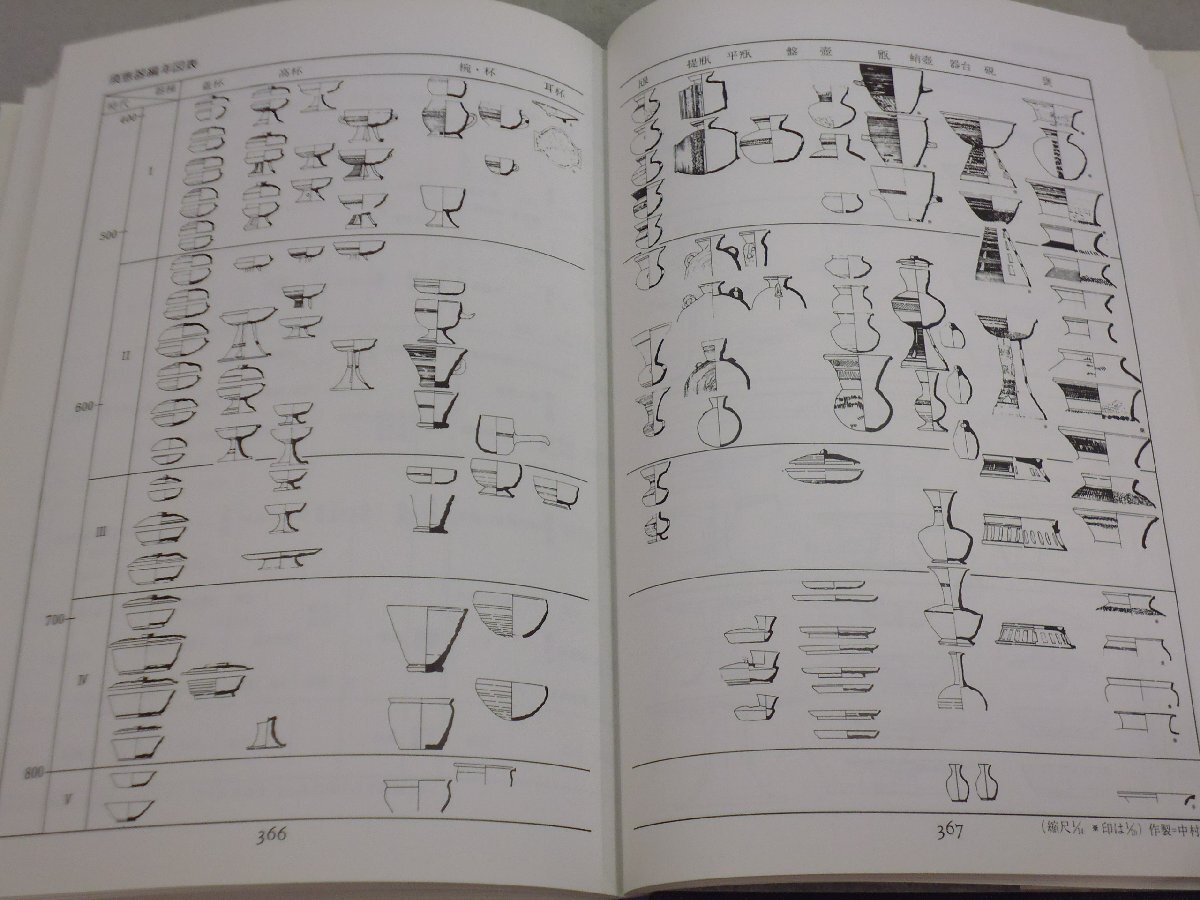 須恵器編年図表
時代 器種 蓋杯 高杯 椀・杯 耳杯
400
I
500
II
600
III
700
IV
800
V
366
𤭯 提瓶 平瓶 盤 壺 甑 蛸壺 器台 硯 甕
367
(縮尺1/11 *印は1/23) 作製=中村